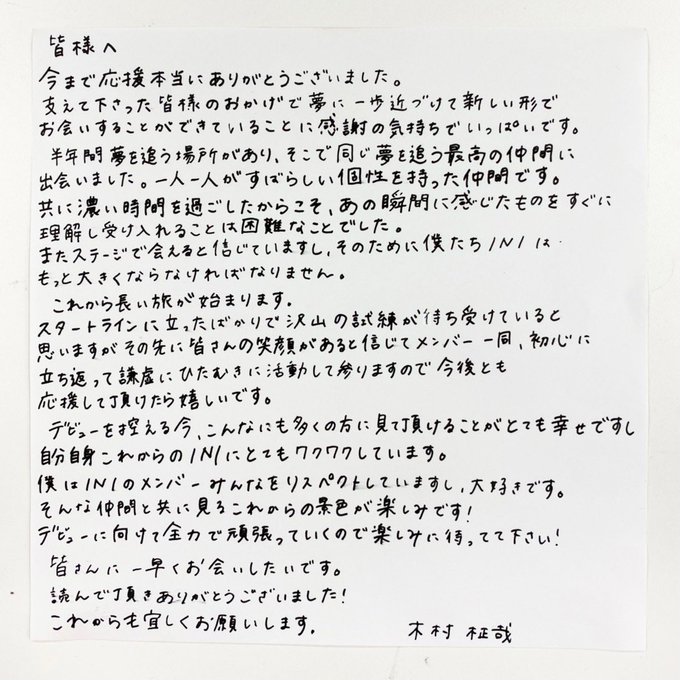 皆様へ
今まで応援本当にありがとうございました。
支えて下さった皆様のおかげで夢に一歩近づけて新しい形で
お会いすることができていることに感謝の気持ちでいっぱいです。
半年間夢を追う場所があり、そこで同じ夢を追う最高の仲間に
出会いました。一人一人がすばらしい個性を持った仲間です。
共に濃い時間を過ごしたからこそ、あの瞬間に感じたものをすぐに
理解し受け入れることは困難なことでした。
またステージで会えると信じていますし、そのために僕たちINIは
もっと大きくならなければなりません。
これから長い旅が始まります。
スタートラインに立ったばかりで沢山の試練が待ち受けていると
思いますがその先に皆さんの笑顔があると信じてメンバー一同、初心に
立ち返って謙虚にひたむきに活動して参りますので今後とも
応援して頂けたら嬉しいです。
デビューを控える今、こんなにも多くの方に見て頂けることがとても幸せですし
自分自身これからのINIにとてもワクワクしています。
僕はINIのメンバーみんなをリスペクトしていますし、大好きです。
そんな仲間と共に見るこれからの景色が楽しみです!
デビューに向けて全力で頑張っていくので楽しみに待ってて下さい!
皆さんに一早くお会いしたいです。
読んで頂きありがとうございました!
これからも宜しくお願いします。
木村柾哉